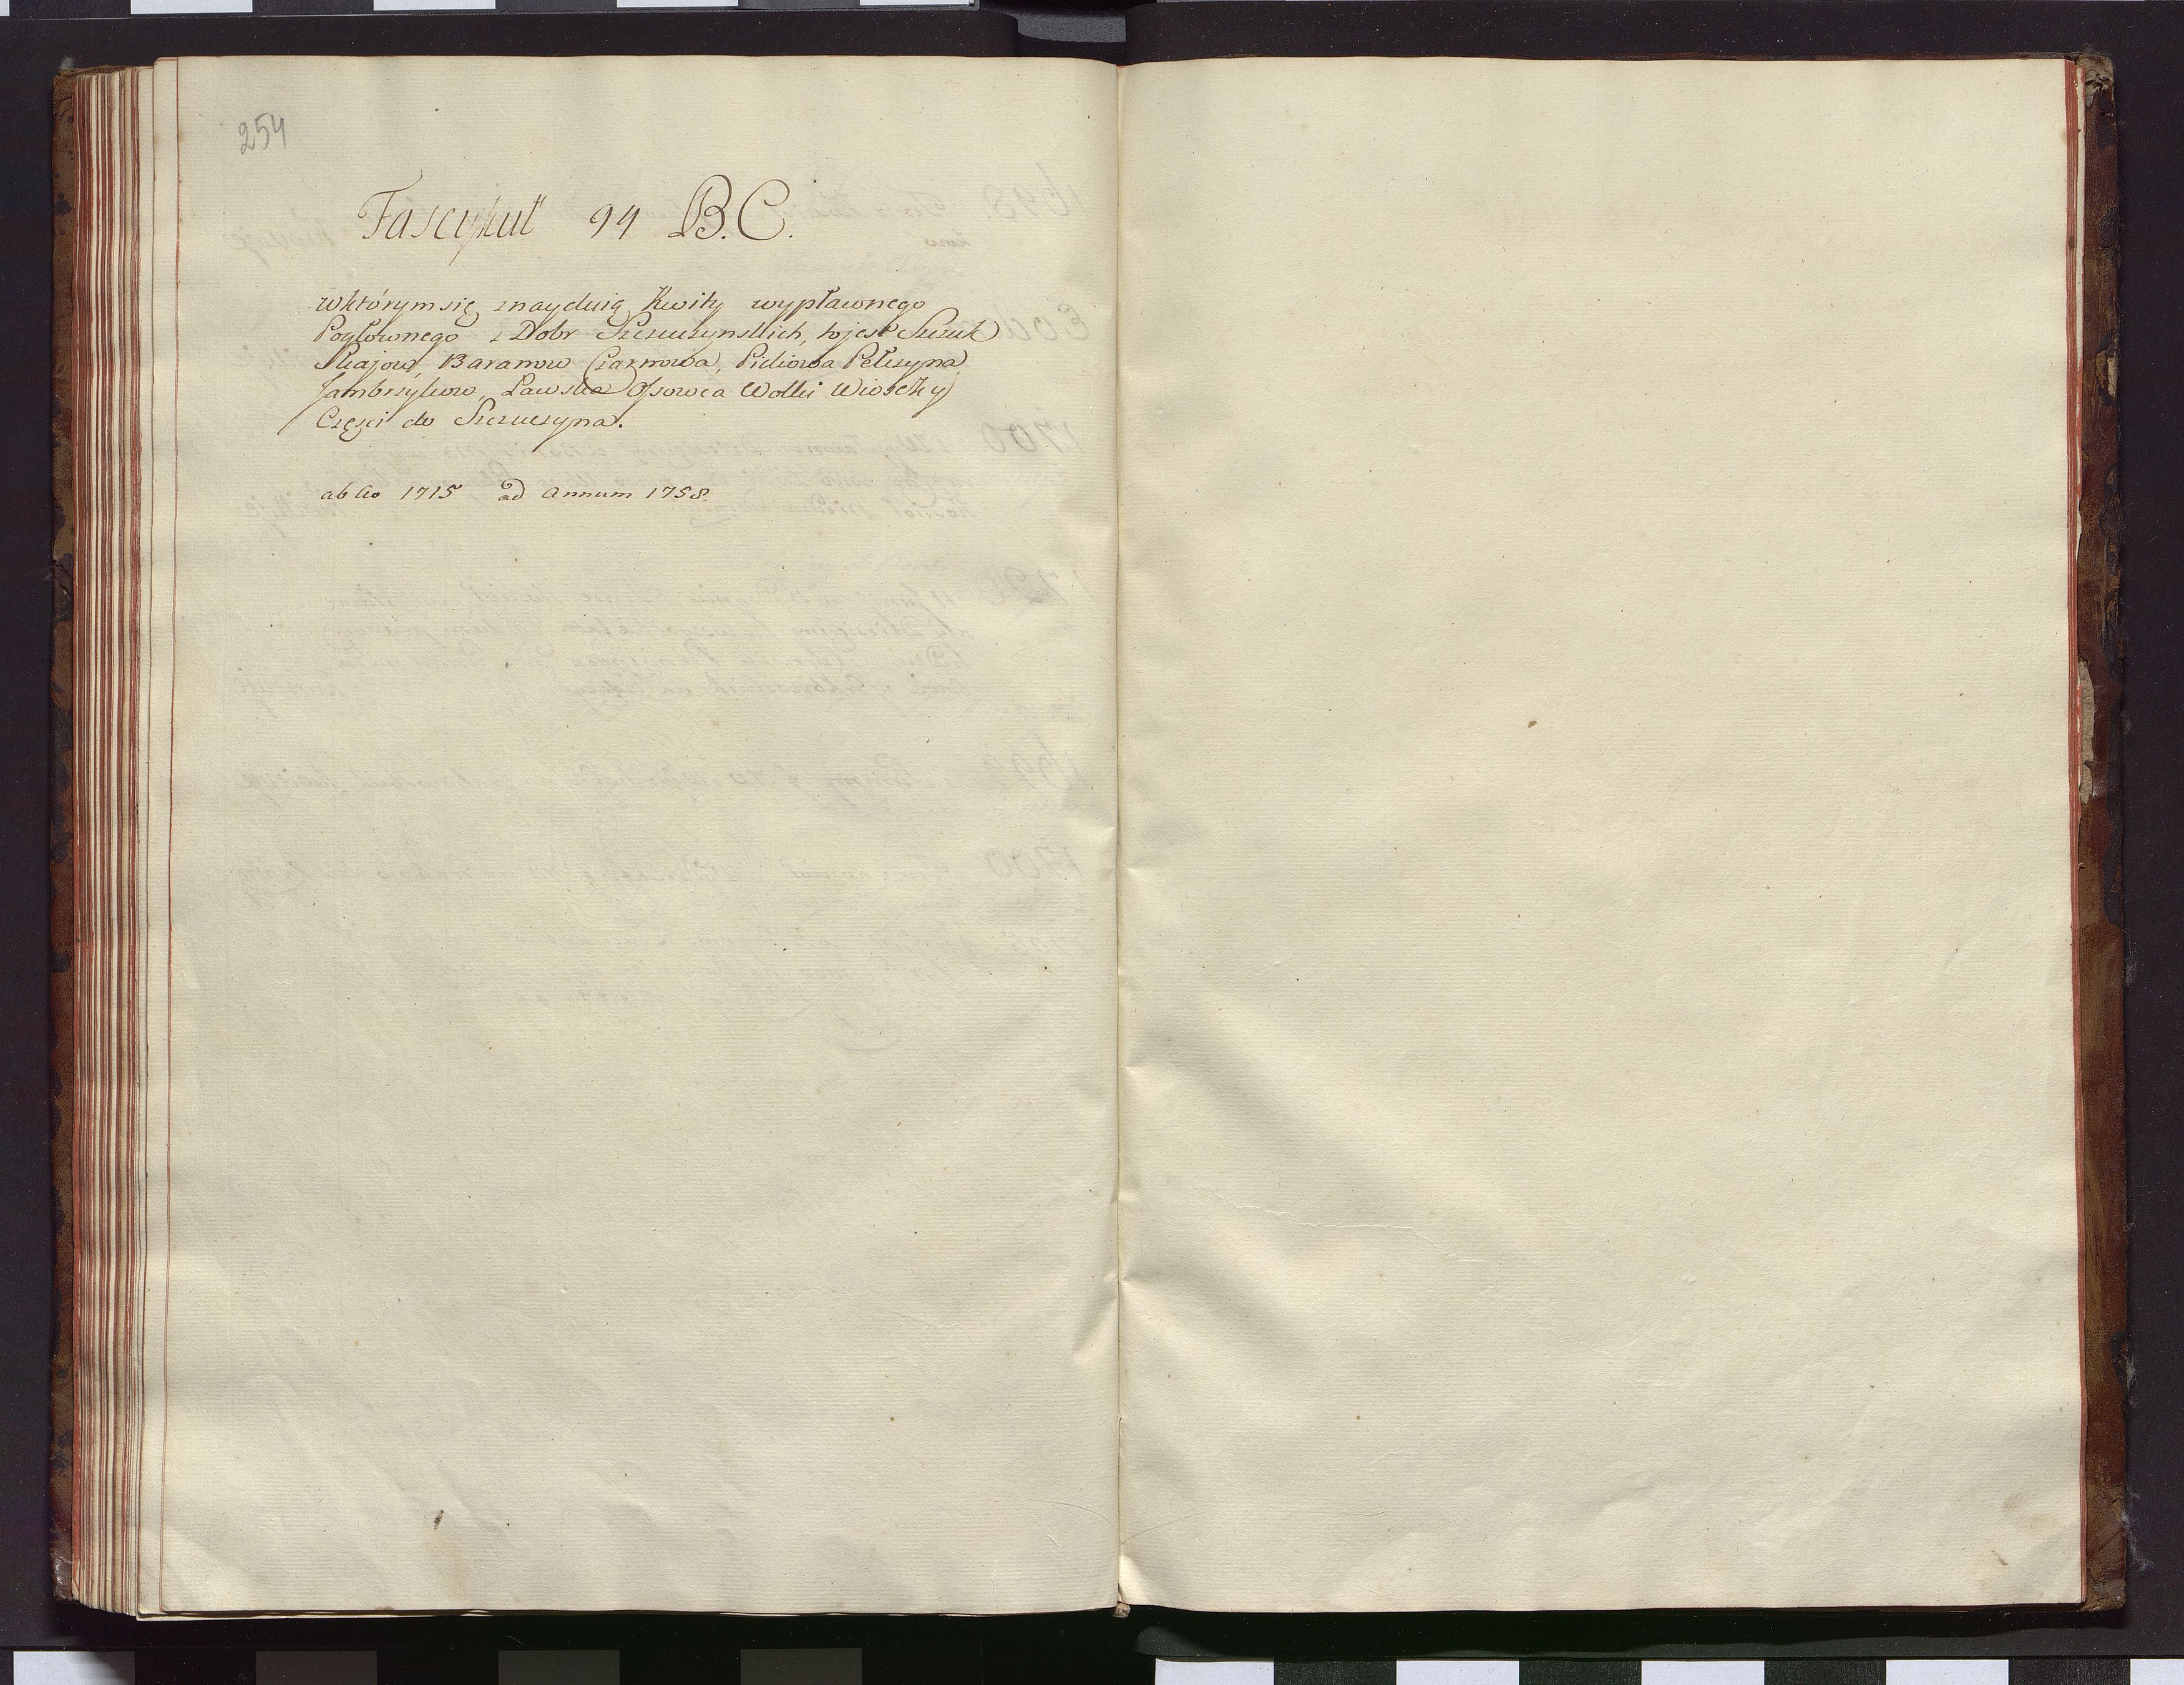 254
Fascykuł 94 B.C.
w którym się znayduią Kwity wypławnego
Pogłownego z Dobr Szczuczynskich, to jest Szczuk
Skajow, Baranow Czarnowa, Pieliowa Pełczyna,
Jambrzykow, Ławska Ossowca Wolki Wiosczky
Części do Szczuczyna.
ab Ao 1715 ad Annum 1758.